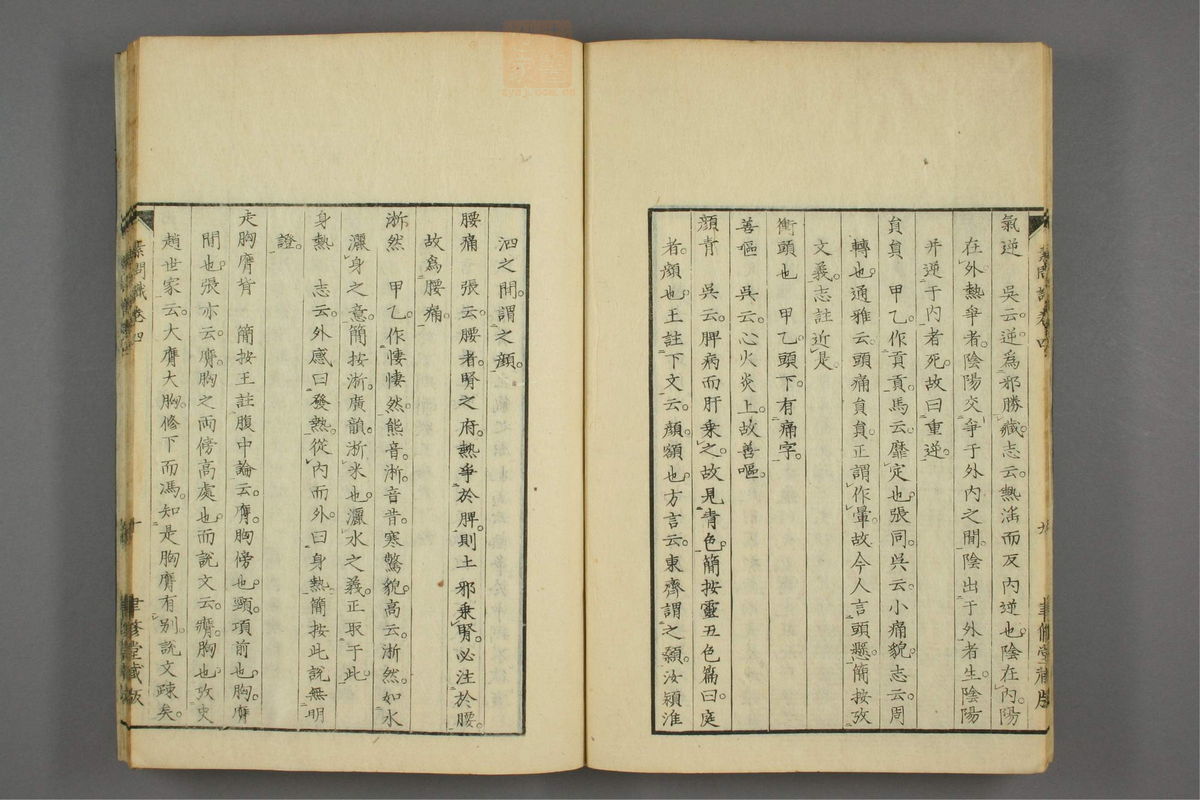 氣逆　吳云逆爲邪勝臧志云熱淫而反內逆也陰在內陽
在外熱爭者陰陽交爭于外內之間陰出于外者生陰陽
并逆于內者死故曰重逆
員員　甲乙作貢貢馬云靡定也張同吳云小痛貌志云周
轉也通雅云頭痛員員正謂作暈故今人言頭懸簡按攷
文義志註近是
衝頭也　甲乙頭下有痛字
善嘔　吳云心火炎上故善嘔
顏青　吳云脾病而肝乘之故見青色簡按靈五色篇曰庭
者顏也王註下文云顏額也方言云東齊謂之顙汝潁淮
泗之間謂之顏
腰痛　張云腰者腎之府熱爭於脾則土邪乘腎必注於腰
故爲腰痛
淅然　甲乙作悽悽然熊音淅音昔寒驚貌高云淅然如水
灑身之意簡按淅廣韻淅米也灑水之義正取于此
身熱　志云外感曰發熱從內而外曰身熱簡按此說無明
證
走胸膺背　簡按王註腹中論云膺胸傍也頸項前也胸膺
間也張亦云膺胸之兩傍高處也而說文云膺胸也攷史
趙世家云大膺大胸修下而馮知是胸膺有別說文疎矣
素問識卷四
十
聿修堂藏版